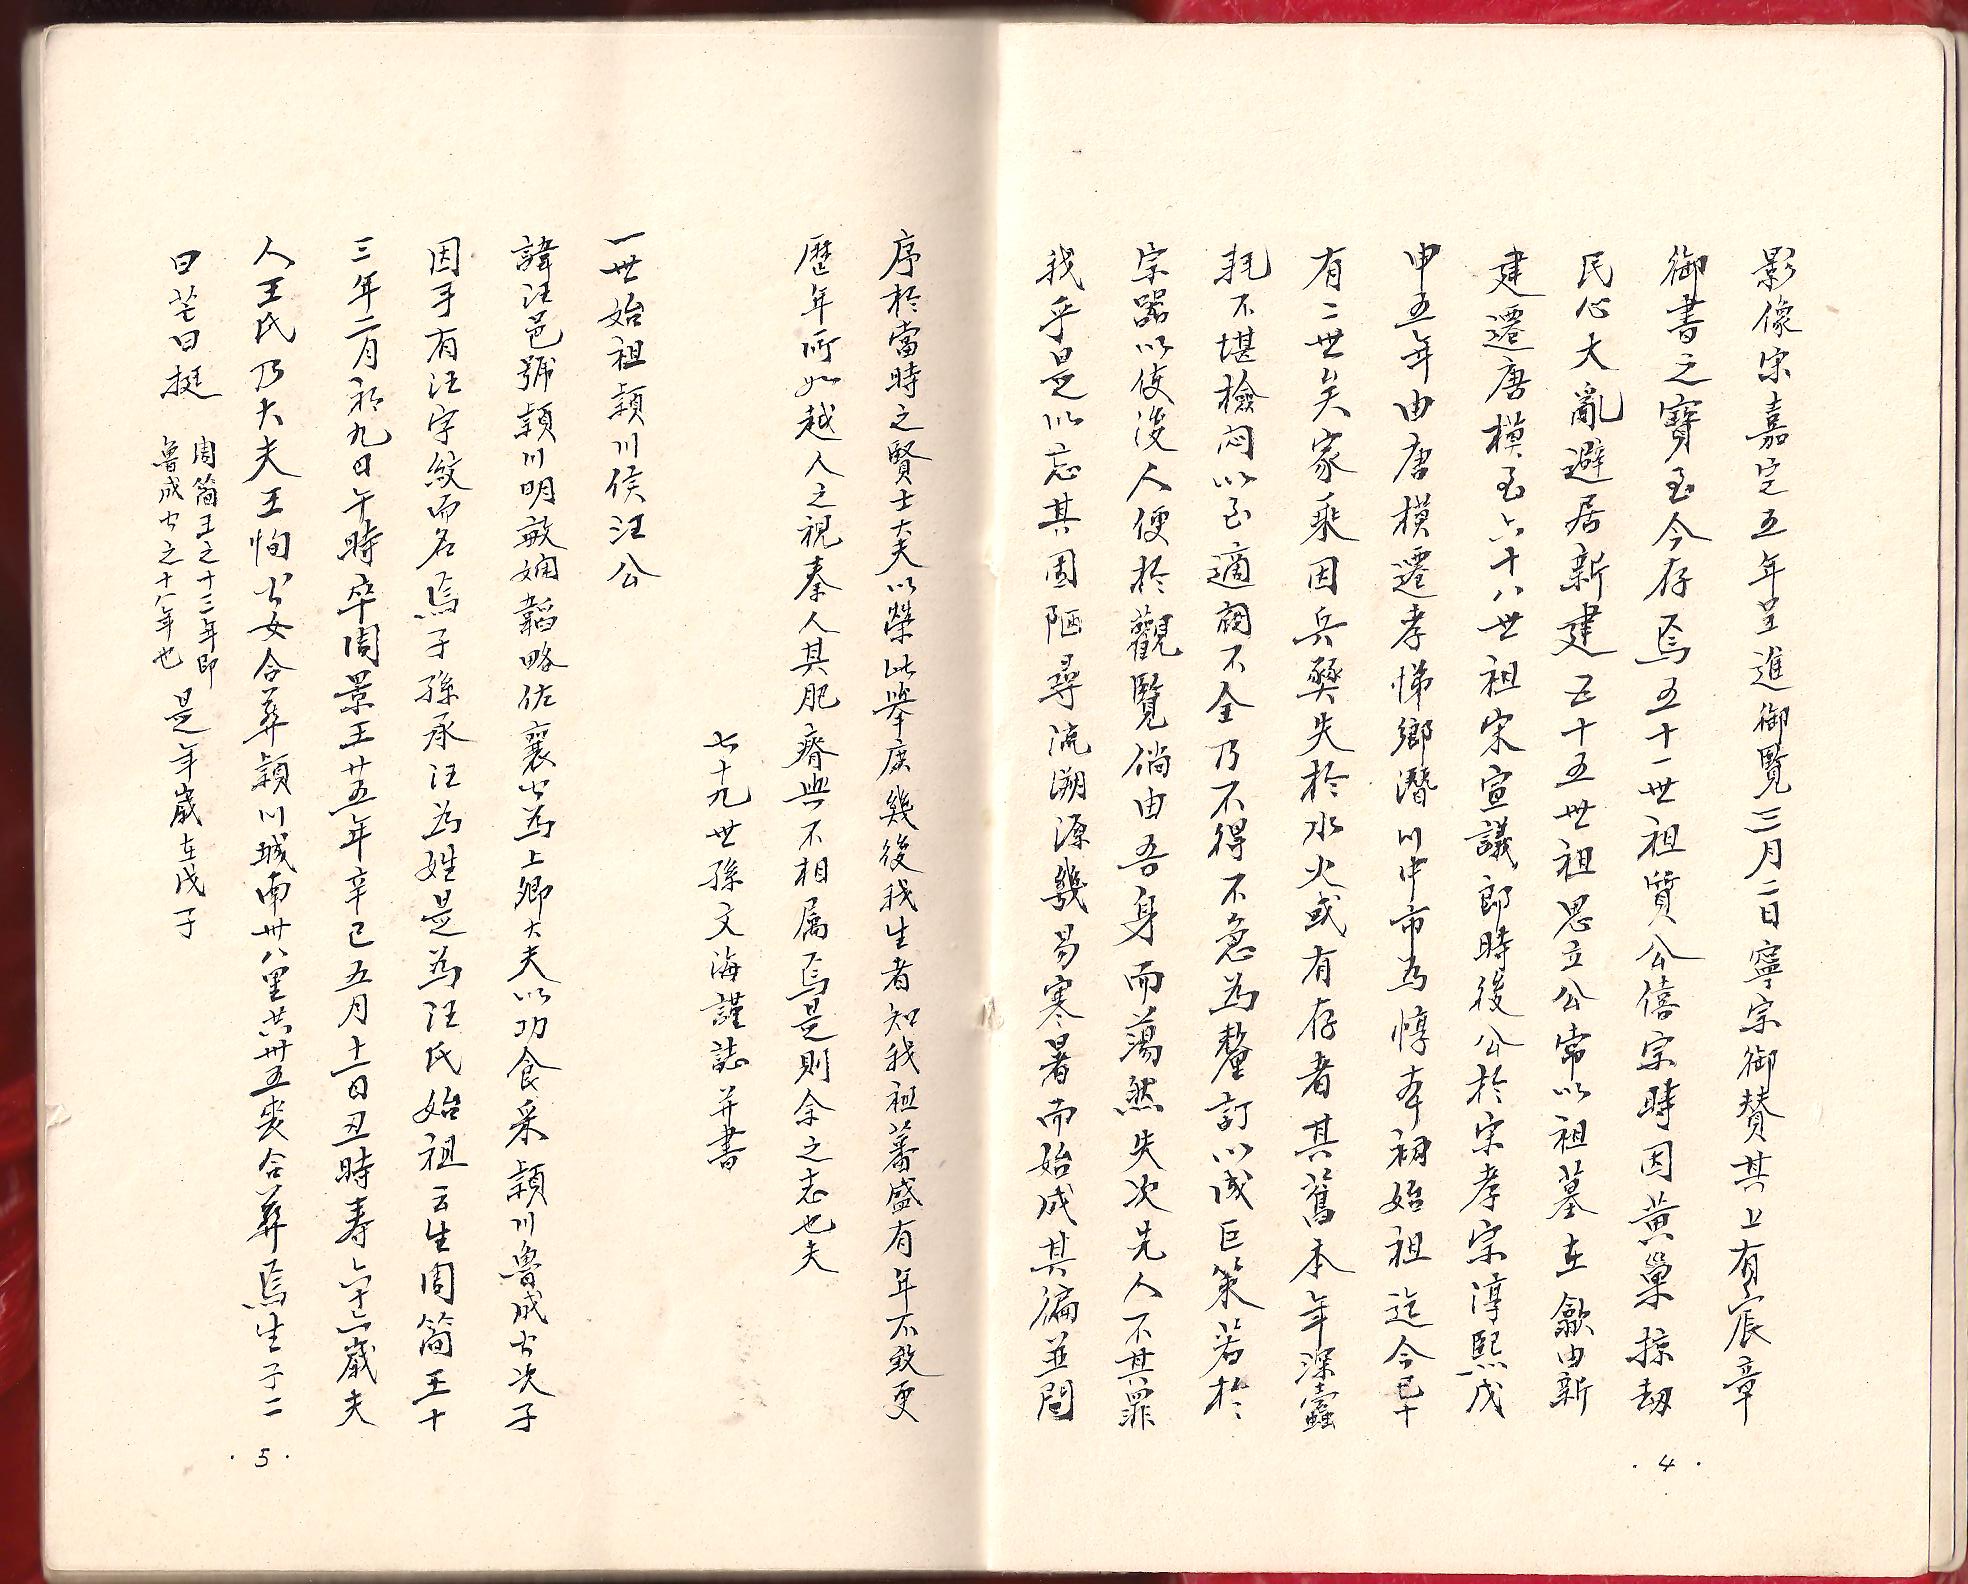 影像宋嘉定五年呈進御覧三月二日寧宗御賛其上有宸章
御書之寶至今存焉五十一世祖質公僖宗時因黄巢掠刼
民心大亂避居新建五十五世祖思立公常以祖墓在歙由新
建遷唐模至六十八世祖宋宣議郎時後公於宋孝宗淳熙戊
申五年由唐模遷孝悌鄉潛川中市為惇本祠始祖迄今已十
有二世矣家乘因兵燹失於水火或有存者其舊本年深蠹
耗不堪檢閱以至適詞不全乃不得不急為釐訂以成巨策若於
宗器以使後人便於觀覽倘由吾身而蕩然失次先人不其罪
我乎是以忘其固陋尋流溯源幾易寒暑而始成其徧並問
序於當時之賢士大夫以榮此舉庶幾後我生者知我祖蕃盛有年不致更
歷年所如越人之視秦人其肥瘠與不相属焉是則余之志也夫
七十九世孫文海謹誌并書
一世始祖穎川侯汪公
諱汪邑號穎川明敏嫻韜略佐襄公為上卿大夫以功食采穎川魯成公次子
因手有汪字紋而名焉子孫承汪為姓是為汪氏始祖云生周简王十
三年二月初九日午時卒周景王廿五年辛巳五月十一日丑時寿六十六歲夫
人王氏乃大夫王恂公女合葬穎川城南卅八里共卅五㱏合葬焉生子二
曰芒曰挺 周简王之十三年即魯成公之十八年也 是年歲在戊子
· 4 ·
· 5 ·